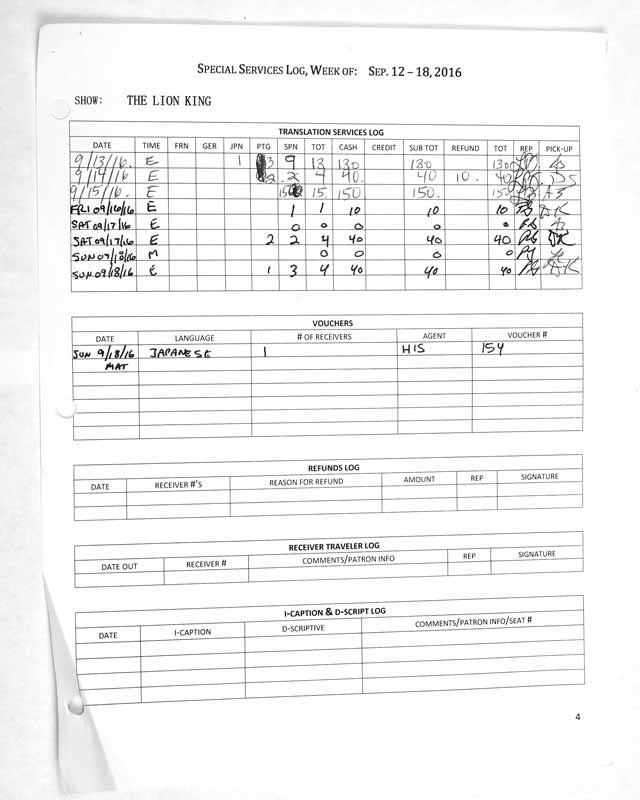 SPECIAL SERVICES LOG, WEEK OF: SEP. 12 – 18, 2016
SHOW: THE LION KING
TRANSLATION SERVICES LOG
DATE TIME FRN GER JPN PTG SPN TOT CASH CREDIT SUB TOT REFUND TOT REP PICK-UP
9/13/16. E 1 3 9 13 130 130 130
9/14/16 E 2 2 4 40. 40 10. 40
9/15/16. E 15 15. 150 150. 150
FRI 09/16/16 E 1 1 10 10 10
SAT 09/17/16 E 0 0 0 0 0
SAT 09/17/16 E 2 2 4 40 40 40
SUN 09/18/16 M 0 0 0 0
SUN 09/18/16 E 1 3 4 40 40 40
VOUCHERS
DATE LANGUAGE # OF RECEIVERS AGENT VOUCHER #
SUN 9/18/16 JAPANESE 1 HIS 154
MAT
REFUNDS LOG
DATE RECEIVER #'S REASON FOR REFUND AMOUNT REP SIGNATURE
RECEIVER TRAVELER LOG
DATE OUT RECEIVER # COMMENTS/PATRON INFO REP SIGNATURE
I-CAPTION & D-SCRIPT LOG
DATE I-CAPTION D-SCRIPTIVE COMMENTS/PATRON INFO/SEAT #
4